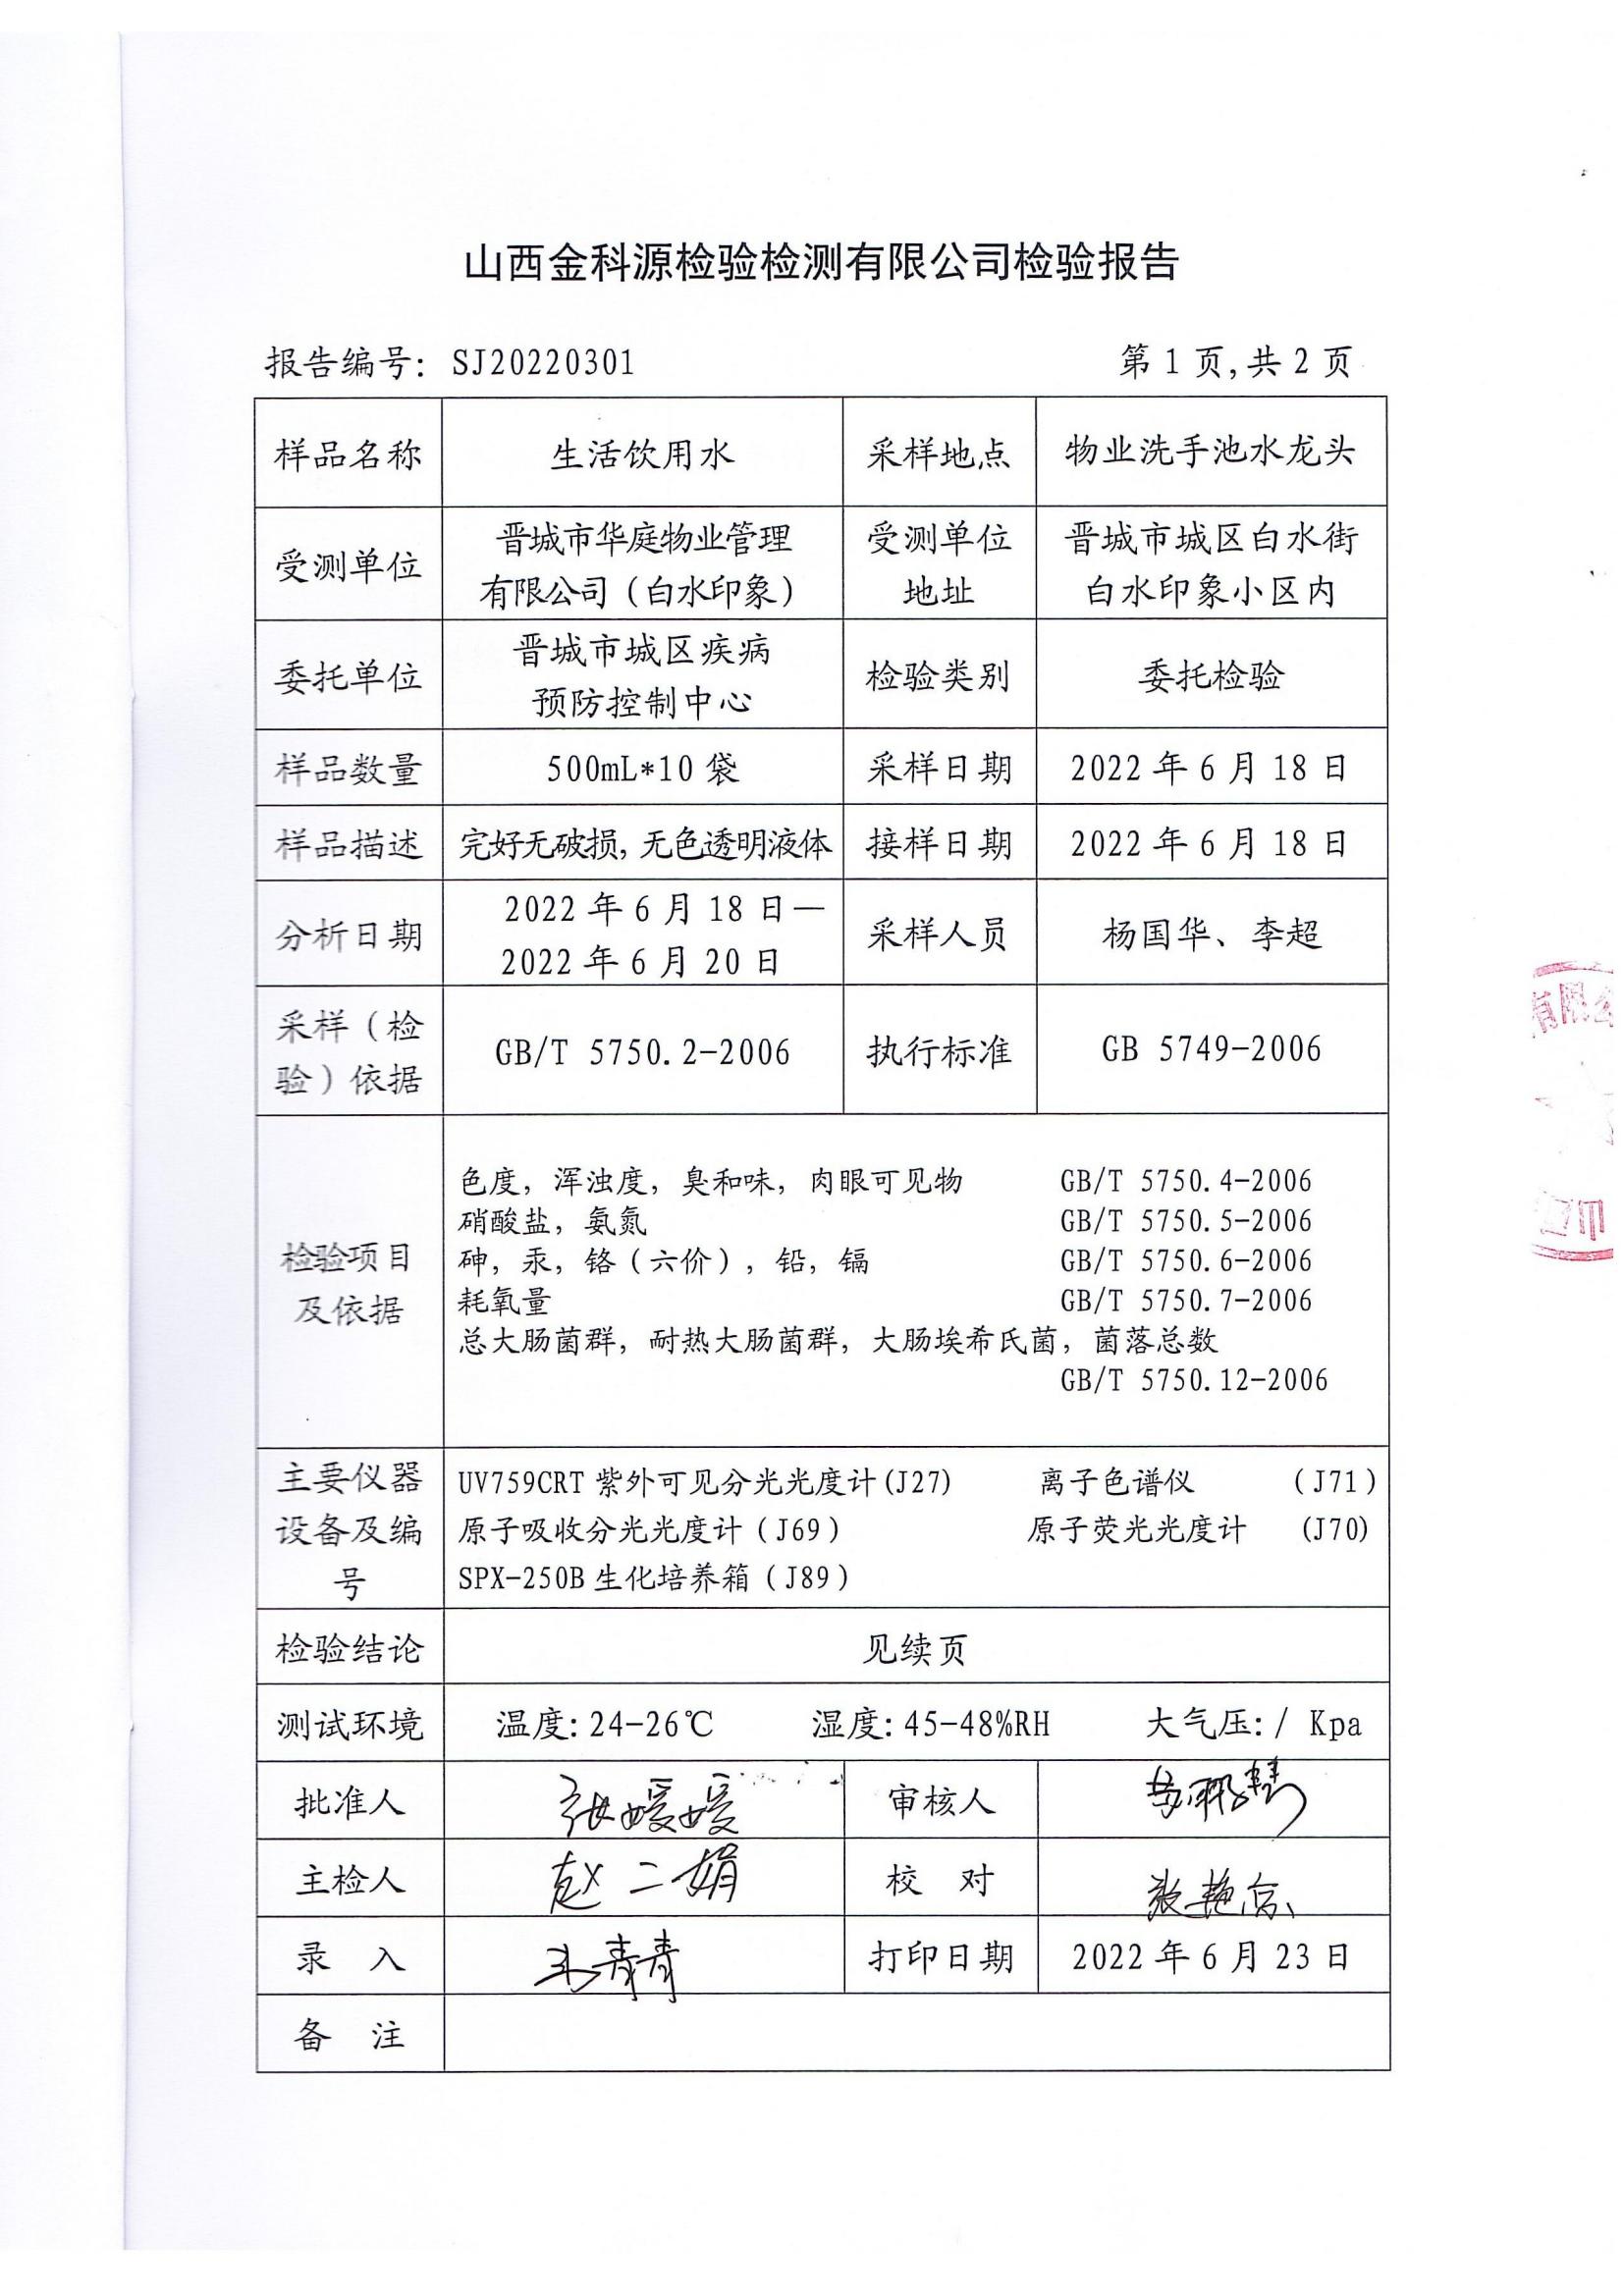 山西金科源检验检测有限公司检验报告
报告编号：SJ20220301 第 1 页,共 2 页
样品名称 生活饮用水 采样地点 物业洗手池水龙头
受测单位 晋城市华庭物业管理
有限公司（白水印象） 受测单位
地址 晋城市城区白水街
白水印象小区内
委托单位 晋城市城区疾病
预防控制中心 检验类别 委托检验
样品数量 500mL*10 袋 采样日期 2022 年 6 月 18 日
样品描述 完好无破损,无色透明液体 接样日期 2022 年 6 月 18 日
分析日期 2022 年 6 月 18 日—
2022 年 6 月 20 日 采样人员 杨国华、李超
采样（检
验）依据 GB/T 5750.2-2006 执行标准 GB 5749-2006
检验项目
及依据
色度，浑浊度，臭和味，肉眼可见物 GB/T 5750.4-2006
硝酸盐，氨氮 GB/T 5750.5-2006
砷，汞，铬（六价），铅，镉 GB/T 5750.6-2006
耗氧量 GB/T 5750.7-2006
总大肠菌群，耐热大肠菌群，大肠埃希氏菌，菌落总数
GB/T 5750.12-2006
主要仪器
设备及编
号
UV759CRT 紫外可见分光光度计(J27) 离子色谱仪 （J71）
原子吸收分光光度计（J69） 原子荧光光度计 (J70)
SPX-250B 生化培养箱（J89）
检验结论 见续页
测试环境 温度:24-26℃ 湿度:45-48%RH 大气压:/ Kpa
批准人 张媛媛 审核人
主检人 赵二娟 校 对
录 入 打印日期 2022 年 6 月 23 日
备 注
有限公